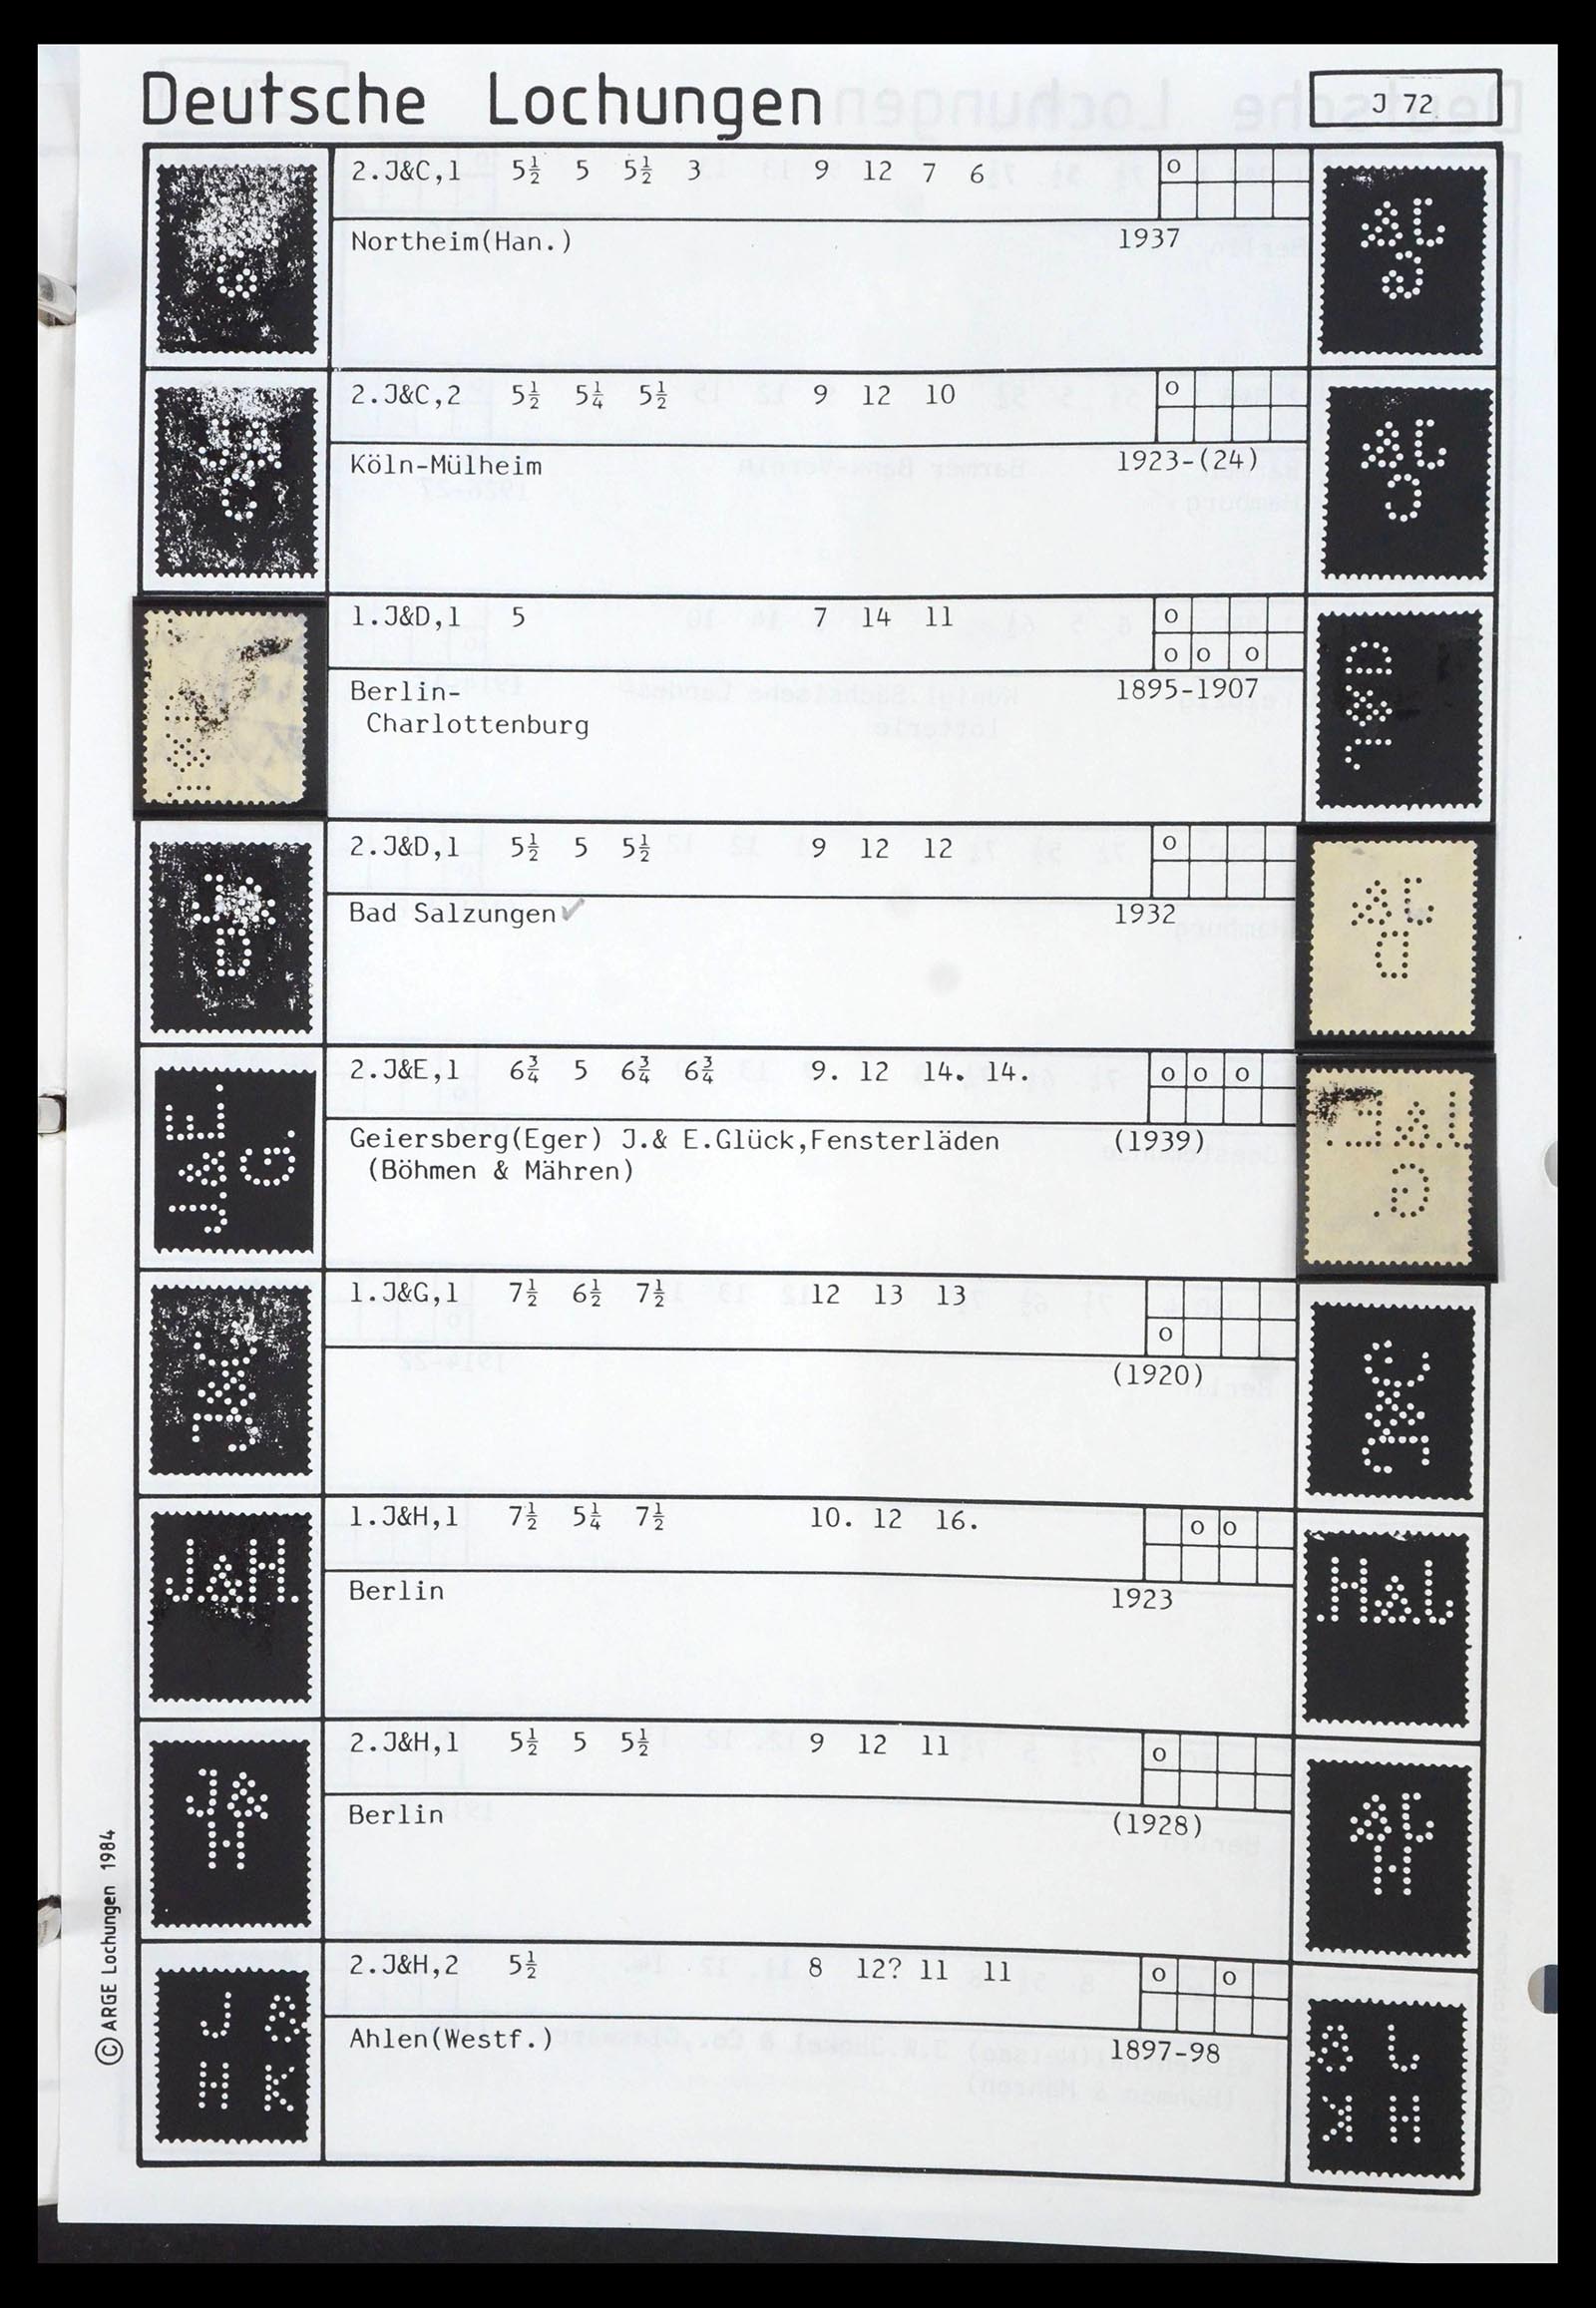 Deutsche Lochungen
J 72
2.J&C,1 5½ 5 5½ 3 9 12 7 6
Northeim(Han.) 1937
2.J&C,2 5½ 5¼ 5½ 9 12 10
Köln-Mülheim 1923-(24)
1.J&D,1 5 7 14 11
Berlin- 1895-1907
Charlottenburg
2.J&D,1 5½ 5 5½ 9 12 12
Bad Salzungen✓ 1932
2.J&E,1 6¾ 5 6¾ 6¾ 9. 12 14. 14.
Geiersberg(Eger) J.& E.Glück,Fensterläden (1939)
(Böhmen & Mähren)
J.&E.
G.
1.J&G,1 7½ 6½ 7½ 12 13 13
(1920)
1.J&H,1 7½ 5¼ 7½ 10. 12 16.
Berlin 1923
J&H.
2.J&H,1 5½ 5 5½ 9 12 11
Berlin (1928)
J&
H
2.J&H,2 5½ 8 12? 11 11
Ahlen(Westf.) 1897-98
J &
H K
© ARGE Lochungen 1984